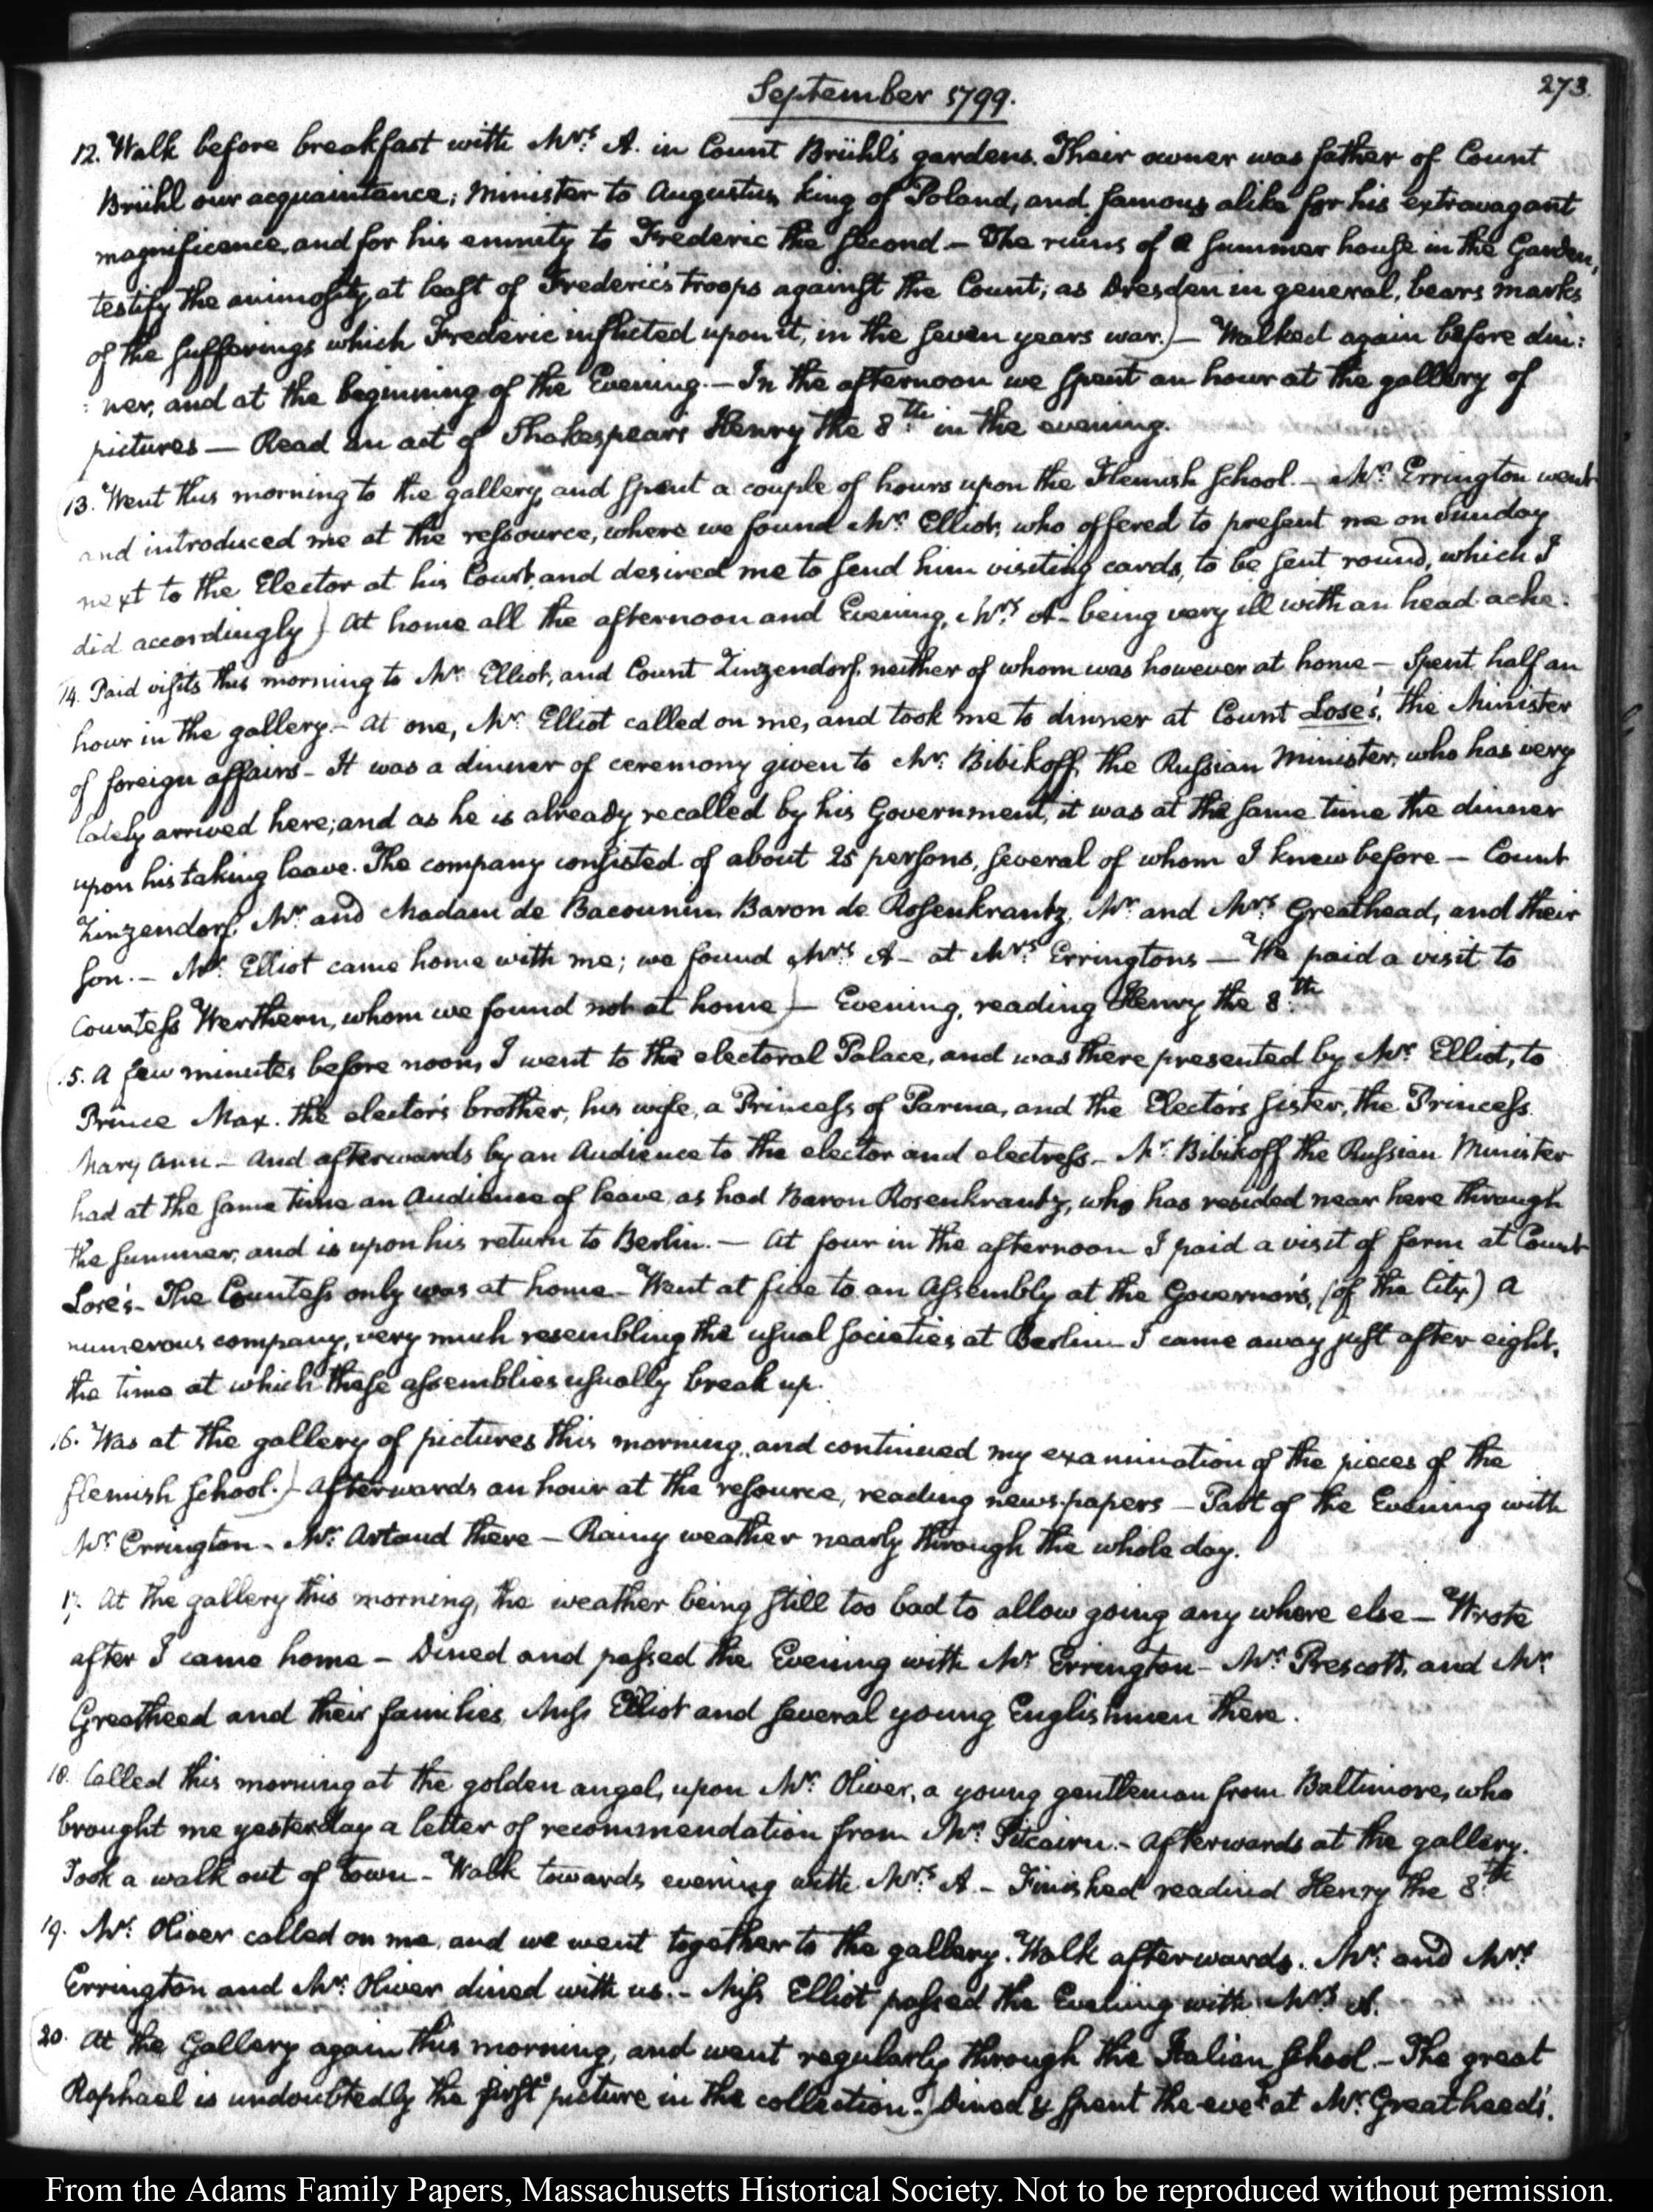 273.
September 1799.
12. Walk before breakfast with Mrs. A. in Count Brühl's gardens. Their owner was father of Count
Brühl our acquaintance; Minister to Augustus, king of Poland, and famous alike for his extravagant
magnificence, and for his enmity to Frederic the Second — The ruins of a summer house in the Garden,
testify the animosity at least of Frederic's troops against the Count; as Dresden in general, bears marks
of the sufferings which Frederic inflicted upon it, in the seven years war.) — Walked again before din:
:ner, and at the beginning of the Evening. — In the afternoon we spent an hour at the gallery of
pictures — Read an act of Shakespear's Henry the 8th. in the evening.
13. Went this morning to the gallery, and spent a couple of hours upon the Flemish School. — Mr. Errington went
and introduced me at the ressource, where we found Mr. Elliot, who offered to present me on Sunday
next to the Elector at his Court, and desired me to send him visiting cards, to be sent round, which I
did accordingly) At home all the afternoon and Evening, Mrs. A- being very ill with an head-ache.
14. Paid visits this morning to Mr. Elliot, and Count Zinzendorf, neither of whom was however at home — Spent half an
hour in the gallery. — At one, Mr. Elliot called on me, and took me to dinner at Count Lose's, the Minister
of foreign affairs — It was a dinner of ceremony given to Mr. Bibikoff, the Russian Minister, who has very
lately arrived here; and as he is already recalled by his Government, it was at the same time the dinner
upon his taking leave. The company consisted of about 25 persons, several of whom I knew before — Count
Zinzendorf, Mr. and Madam de Bacounin, Baron de Rosenkrantz, Mr. and Mrs. Greathead, and their
son. — Mr. Elliot came home with me; we found Mrs. A- at Mrs. Erringtons — We paid a visit to
Countess Werthern, whom we found not at home) — Evening, reading Henry the 8th.
15. A few minutes before noon, I went to the electoral Palace, and was there presented by Mr. Elliot, to
Prince Max. the elector's brother, his wife, a Princess of Parma, and the Elector's sister, the Princess
Mary Ann — And afterwards by an Audience to the elector and electress — Mr. Bibikoff the Russian Minister
had at the same time an Audience of leave, as had Baron Rosenkrantz, who has resided near here through
the summer, and is upon his return to Berlin. — At four in the afternoon I paid a visit of form at Count
Lose's — The Countess only was at home — Went at five to an Assembly at the Governor's, (of the City.) A
numerous company, very much resembling the usual societies at Berlin — I came away just after eight,
the time at which these assemblies usually break up.
16. Was at the gallery of pictures this morning, and continued my examination of the pieces of the
flemish school.) Afterwards an hour at the resource, reading news-papers — Part of the Evening with
Mr. Errington — Mr. Artaud there — Rainy weather nearly through the whole day.
17. At the gallery this morning, the weather being still too bad to allow going any where else — Wrote
after I came home — Dined and passed the Evening with Mr. Errington — Mr. Prescott, and Mr.
Greatheed and their families, Miss Elliot and several young Englishmen there.
18. Called this morning at the golden angel, upon Mr. Oliver, a young gentleman from Baltimore, who
brought me yesterday a letter of recommendation from Mr. Pitcairn. — Afterwards at the gallery.
Took a walk out of town — Walk towards evening with Mrs. A — Finished readind Henry the 8th.
19. Mr. Oliver called on me, and we went together to the gallery. Walk afterwards. Mr. and Mrs.
Errington and Mr. Oliver dined with us. — Miss Elliot passed the Evening with Mrs. A.
20. At the Gallery again this morning, and went regularly through the Italian School — The great
Raphael is undoubtedly the first picture in the collection.) Dined & spent the eveg. at Mr. Greatheed's.
From the Adams Family Papers, Massachusetts Historical Society. Not to be reproduced without permission.